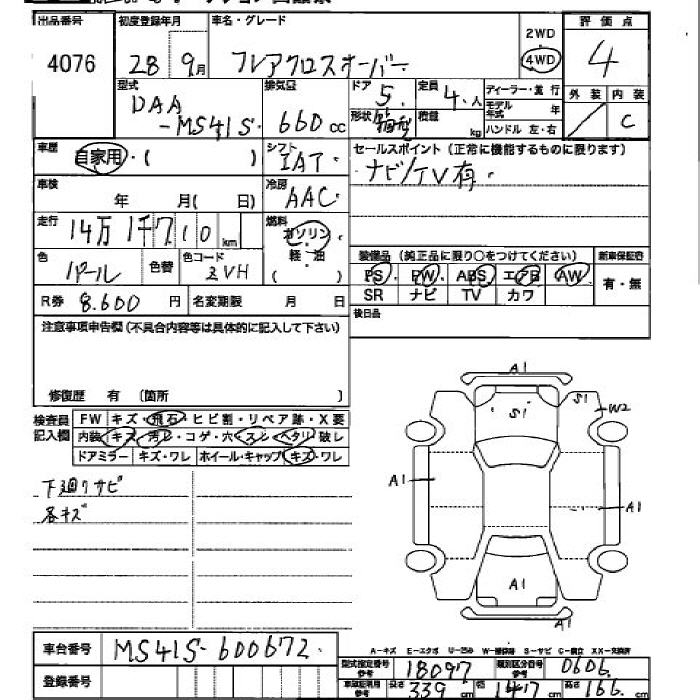 出品番号 初度登録年月 車名・グレード 2WD 評価点
4076 28 9月 フレアクロスオーバー 4WD 4
型式 排気量 ドア 定員 ディーラー・並行 外装 内装
DAA-MS41S 660cc 5 4人 モデル年式 年 C
形状 箱型 積載 kg ハンドル 左・右
車歴 自家用・( ) シフト IAT セールスポイント (正常に機能するものに限ります)
ナビ/TV有
車検 年 月( 日) 冷房 AAC
走行 14万1千710km 燃料 ガソリン 軽・油 ( )
装備品 (純正品に限り○をつけてください) 新車保証書
色 パール 色替 色コード ZVH PS PW ABS エアB AW 有・無
SR ナビ TV カワ
R券 8.600円 名変期限 月 日 後日品
注意事項申告欄(不具合内容等は具体的に記入して下さい)
修復歴 有 (箇所 )
検査員記入欄 FW キズ・飛石・ヒビ割・リペア跡・X要
内装 キズ・汚レ・コゲ・穴・スレ・ヘタリ・破レ
ドアミラー キズ・ワレ ホイール・キャップ キズ・ワレ
下廻りサビ
各キズ
A1
S1 S1 W2
A1 A1
A1
A1
A-キズ E-エクボ U-凹み W-補修跡 S-サビ C-腐食 XX-交換済
車台番号 MS41S-600672
登録番号
型式指定番号参考 18097 類別区分番号参考 0606
車庫証明用参考 長さ 339cm 幅 147cm 高さ 166cm